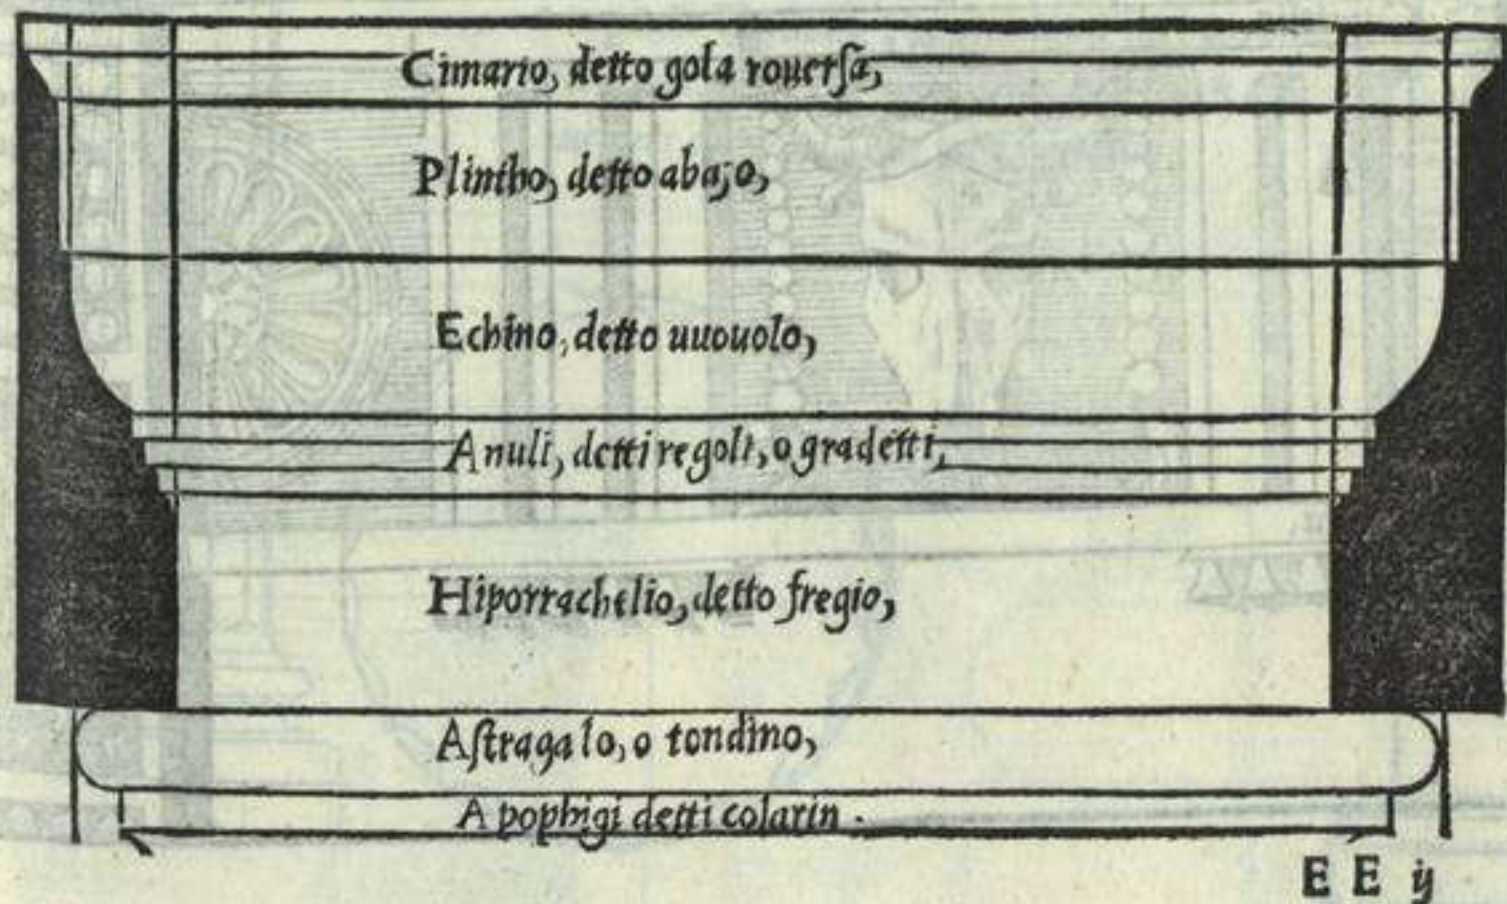 Cimatio, detto gola rouerſa,
Plintho, detto abajo,
Echino, detto uuouolo,
Anuli, detti regoli, o gradetti,
Hipotrachelio, detto fregio,
Aſtragalo, o tondino,
Apophigi detti colarin.
E E ij